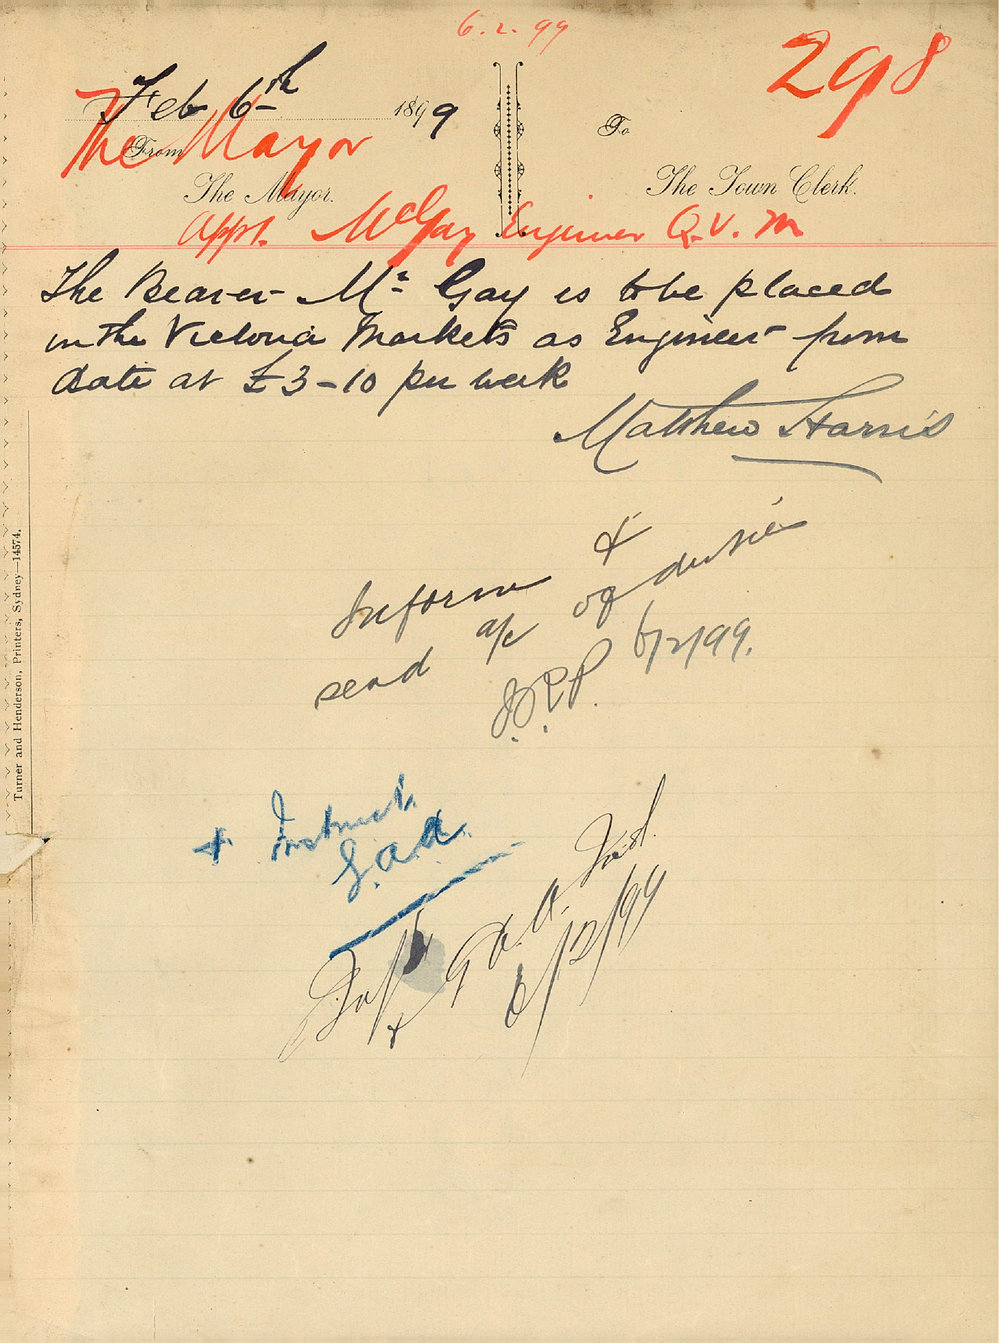 6.2.99
298
Feb 6th 1899
The Mayor
From
To
The Mayor.
The Town Clerk.
Appt. McGay Engineer Q.V.M
The Bearer Mr Gay is to be placed
in the Victoria Markets as Engineer from
date at £3-10 per week
Matthew Harris
Inform +
send a/c of duties
6/2/99.
+ Instruct.
6/2/99
Turner and Henderson, Printers, Sydney—14574.